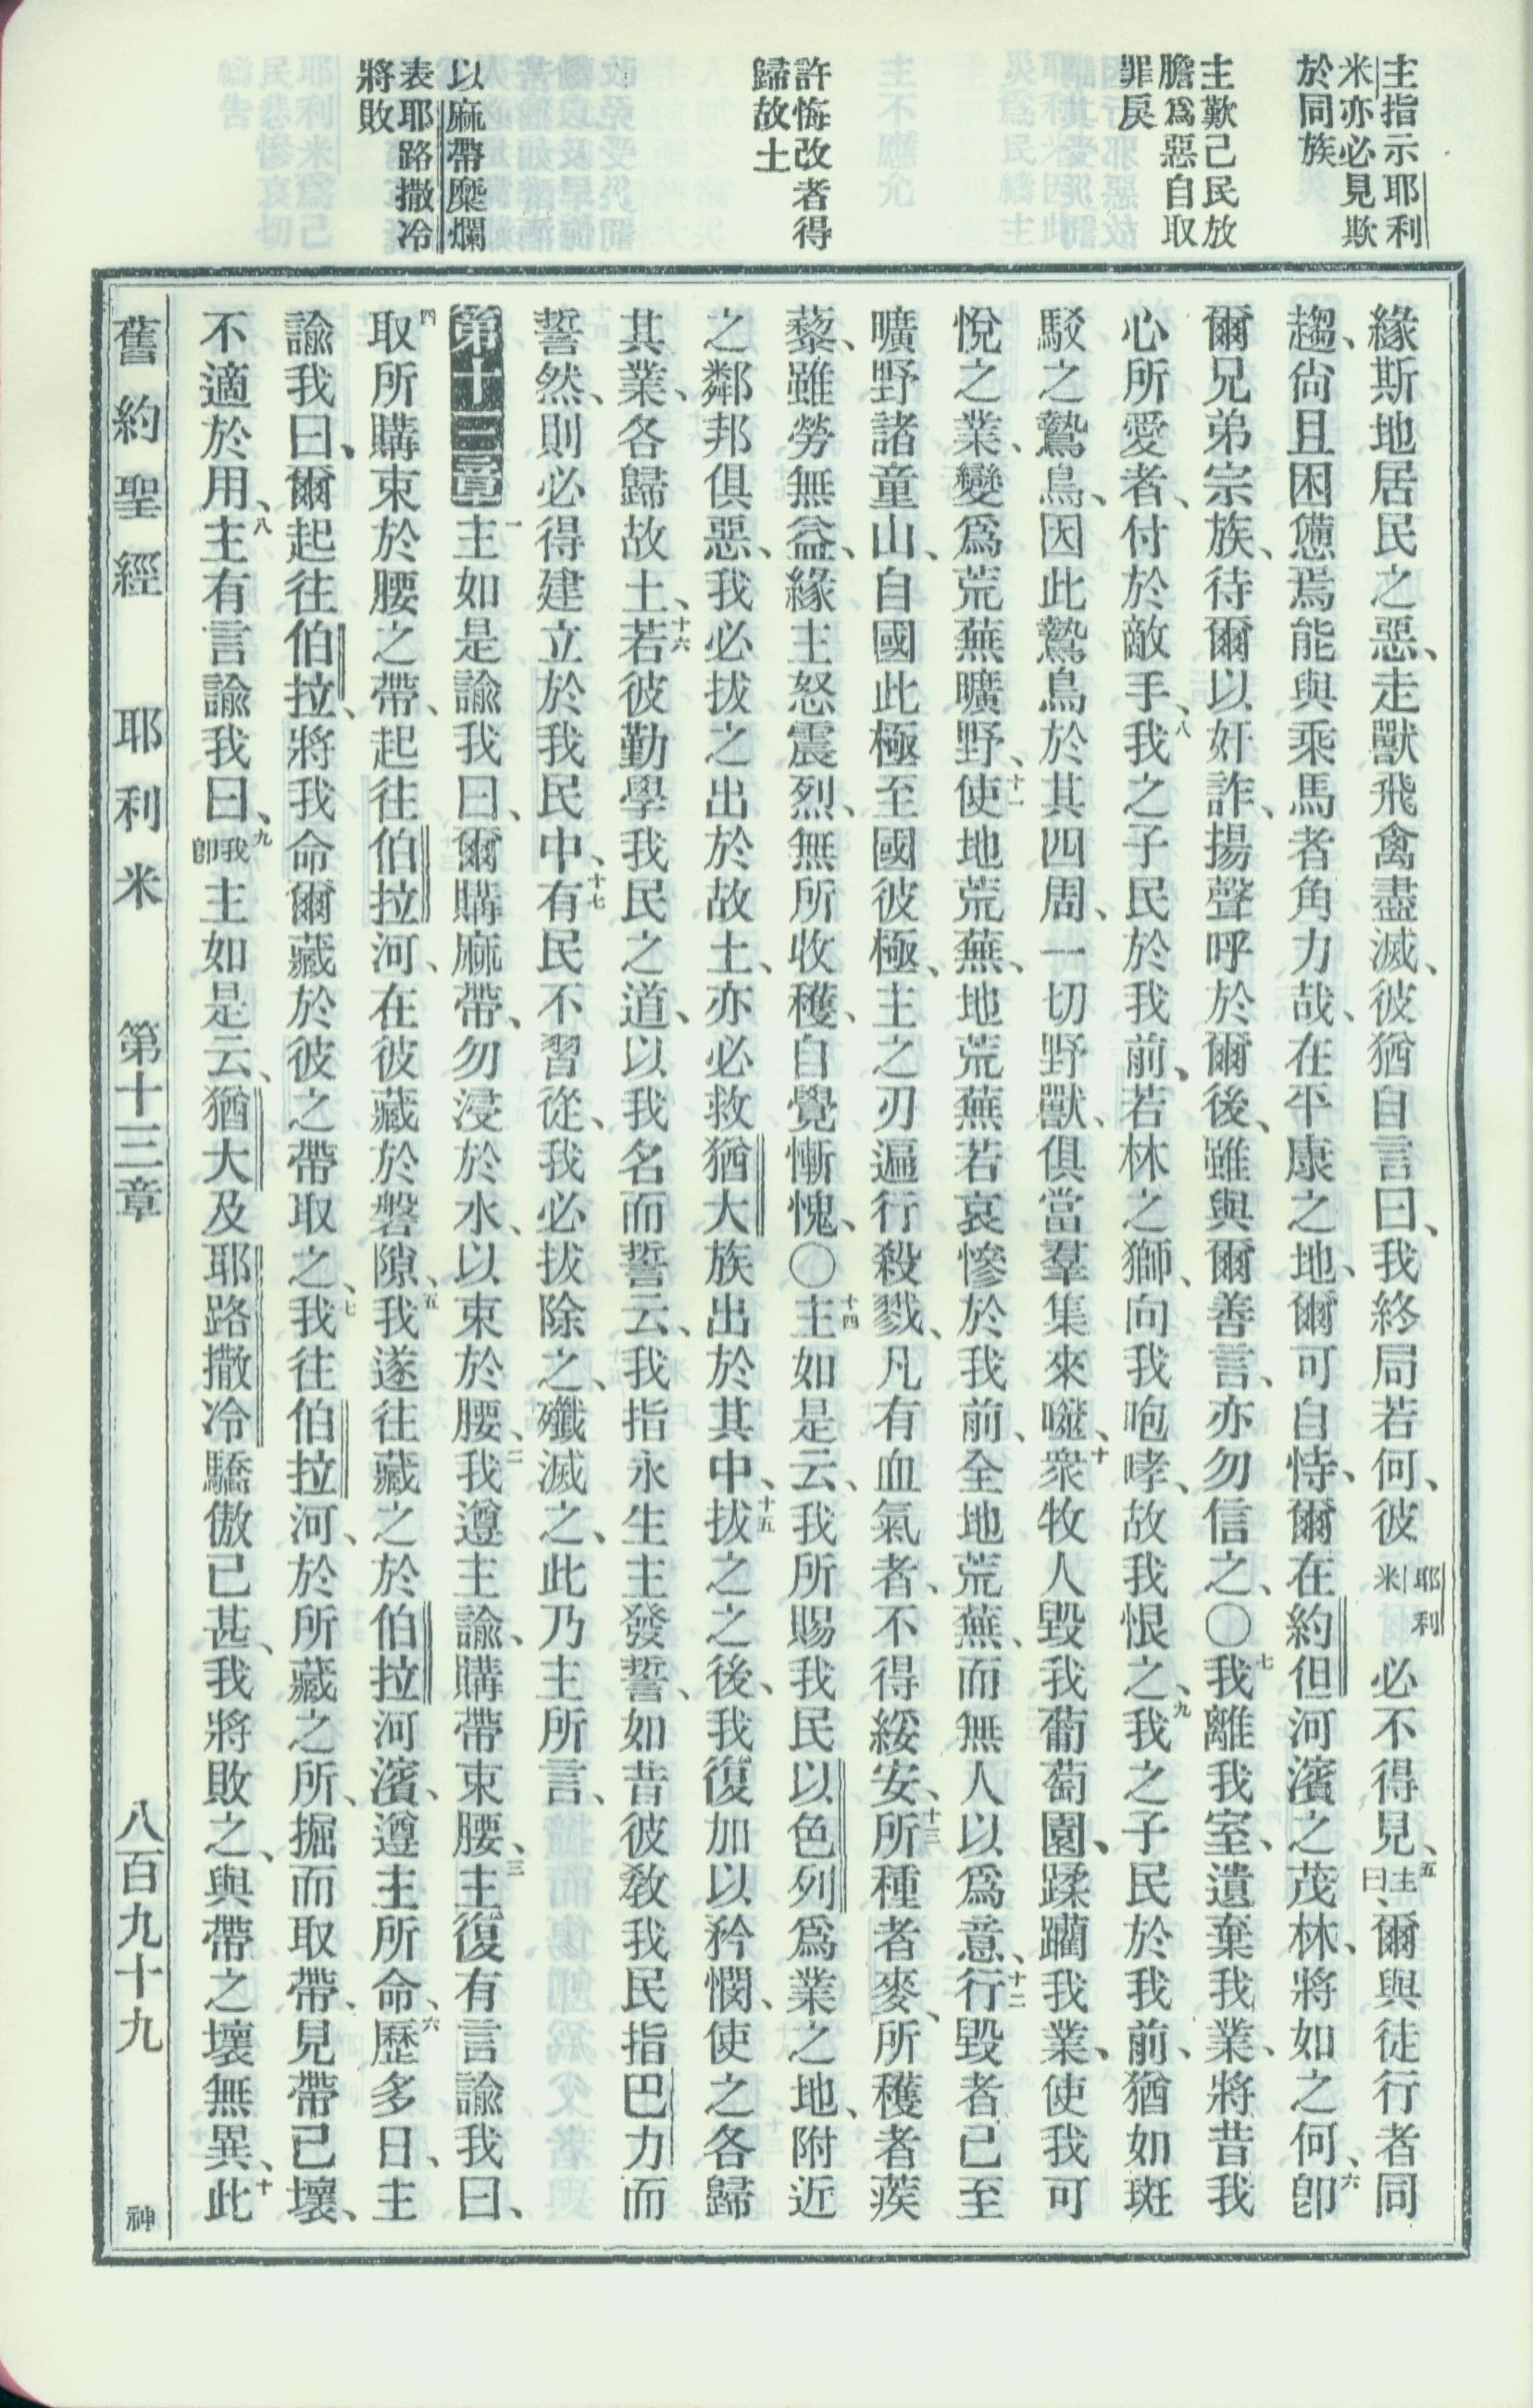 主指示耶利
米亦必見欺
於同族
主歎己民放
膽爲惡自取
罪戾
許悔改者得
歸故土
以麻帶糜爛
表耶路撒冷
將敗
緣斯地居民之惡、走獸飛禽盡滅、彼猶自言曰、我終局若何、彼耶利米必不得見、五主曰、爾與徒行者同
趨、尙且困憊、焉能與乘馬者角力哉、在平康之地、爾可自恃、爾在約但河濱之茂林、將如之何、六卽
爾兄弟宗族、待爾以奸詐、揚聲呼於爾後、雖與爾善言、亦勿信之、〇七我離我室、遺棄我業、將昔我
心所愛者、付於敵手、八我之子民於我前、若林之獅、向我咆哮、故我恨之、九我之子民於我前、猶如斑
駁之鷙鳥、因此鷙鳥於其四周、一切野獸、俱當羣集來噬、十衆牧人毀我葡萄園、蹂躪我業、使我可
悅之業、變爲荒蕪曠野、十一使地荒蕪、地荒蕪若哀慘於我前、全地荒蕪、而無人以爲意、十二行毀者已至
曠野諸童山、自國此極至國彼極、主之刃遍行殺戮、凡有血氣者、不得綏安、十三所種者麥、所穫者蒺
藜、雖勞無益、緣主怒震烈、無所收穫、自覺慚愧、〇十四主如是云、我所賜我民以色列爲業之地、附近
之鄰邦俱惡、我必拔之出於故土、亦必救猶大族出於其中、十五拔之之後、我復加以矜憫、使之各歸
其業、各歸故土、十六若彼勤學我民之道、以我名而誓云、我指永生主發誓、如昔彼敎我民指巴力而
誓然、則必得建立於我民中、十七有民不習從、我必拔除之、殲滅之、此乃主所言、
第十三章一主如是諭我曰、爾購麻帶、勿浸於水、以束於腰、二我遵主諭、購帶束腰、三主復有言諭我曰、
四取所購束於腰之帶、起往伯拉河、在彼藏於磐隙、五我遂往藏之於伯拉河濱、遵主所命、六歷多日、主
諭我曰、爾起往伯拉、將我命爾藏於彼之帶取之、七我往伯拉河、於所藏之所、掘而取帶、見帶已壞、
不適於用、八主有言諭我曰、九我卽主如是云、猶大及耶路撒冷驕傲已甚、我將敗之、與帶之壞無異、十此
舊約聖經 耶利米 第十三章 八百九十九 神